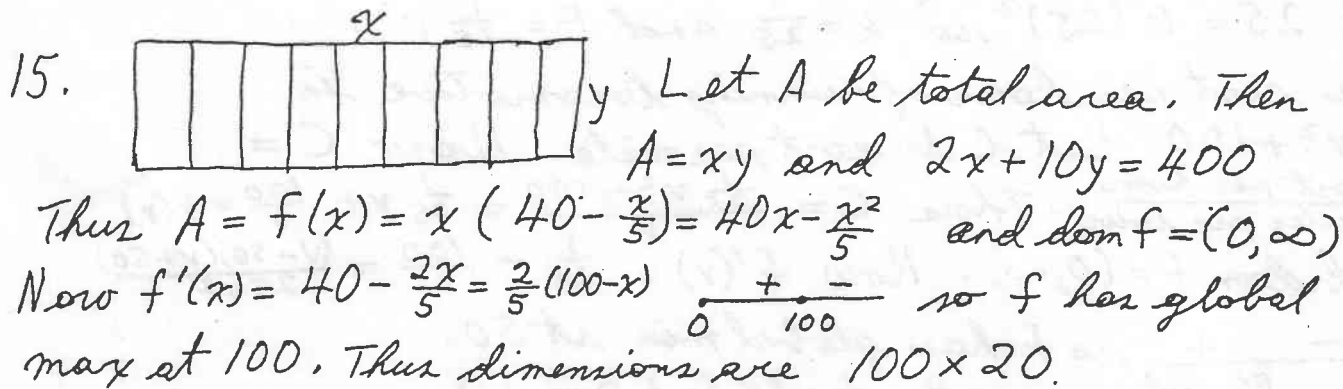 x
15. y Let A be total area. Then
A = xy and 2x + 10y = 400
Thus A = f(x) = x (40 - x/5) = 40x - x²/5 and dom f = (0, ∞)
Now f'(x) = 40 - 2x/5 = 2/5 (100-x) + - so f has global
0 100
max at 100. Thus dimensions are 100 x 20.